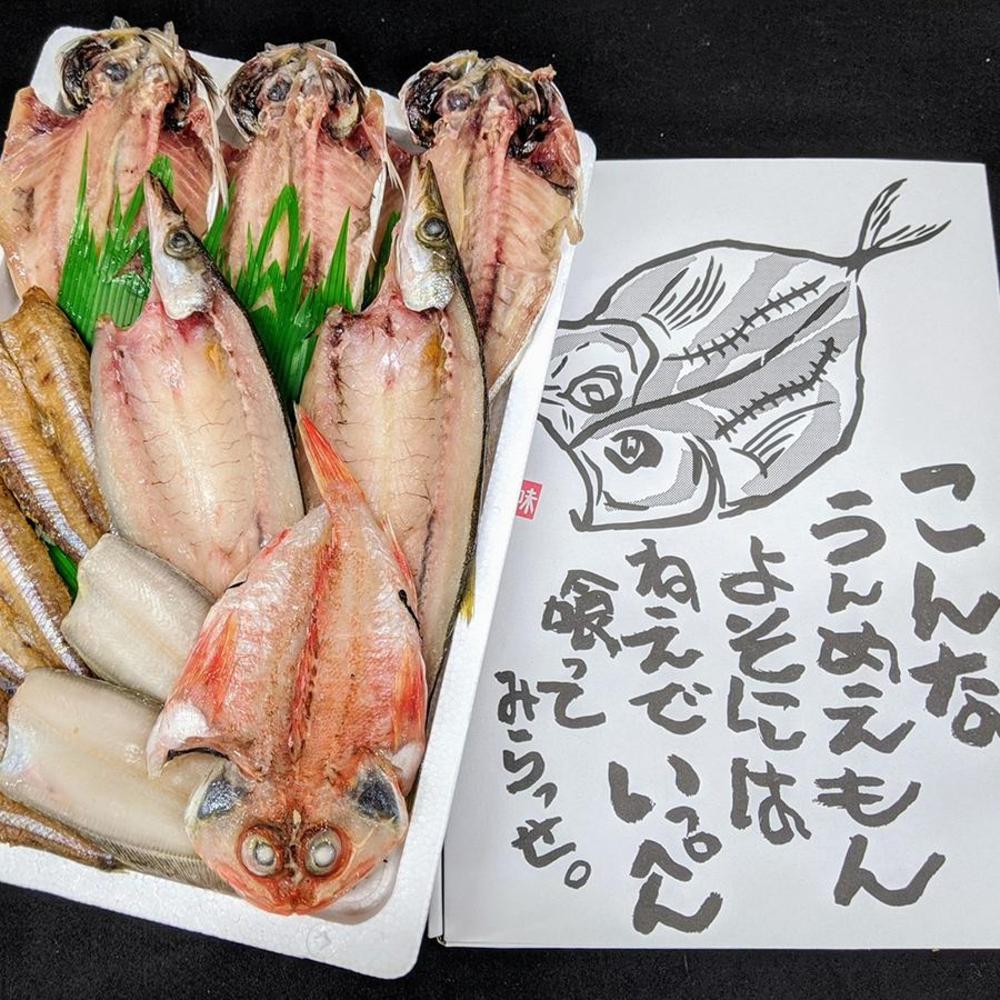 こんな
うんめえもん
よそには
ねえでいっぺん
喰って
みらっせ。
味